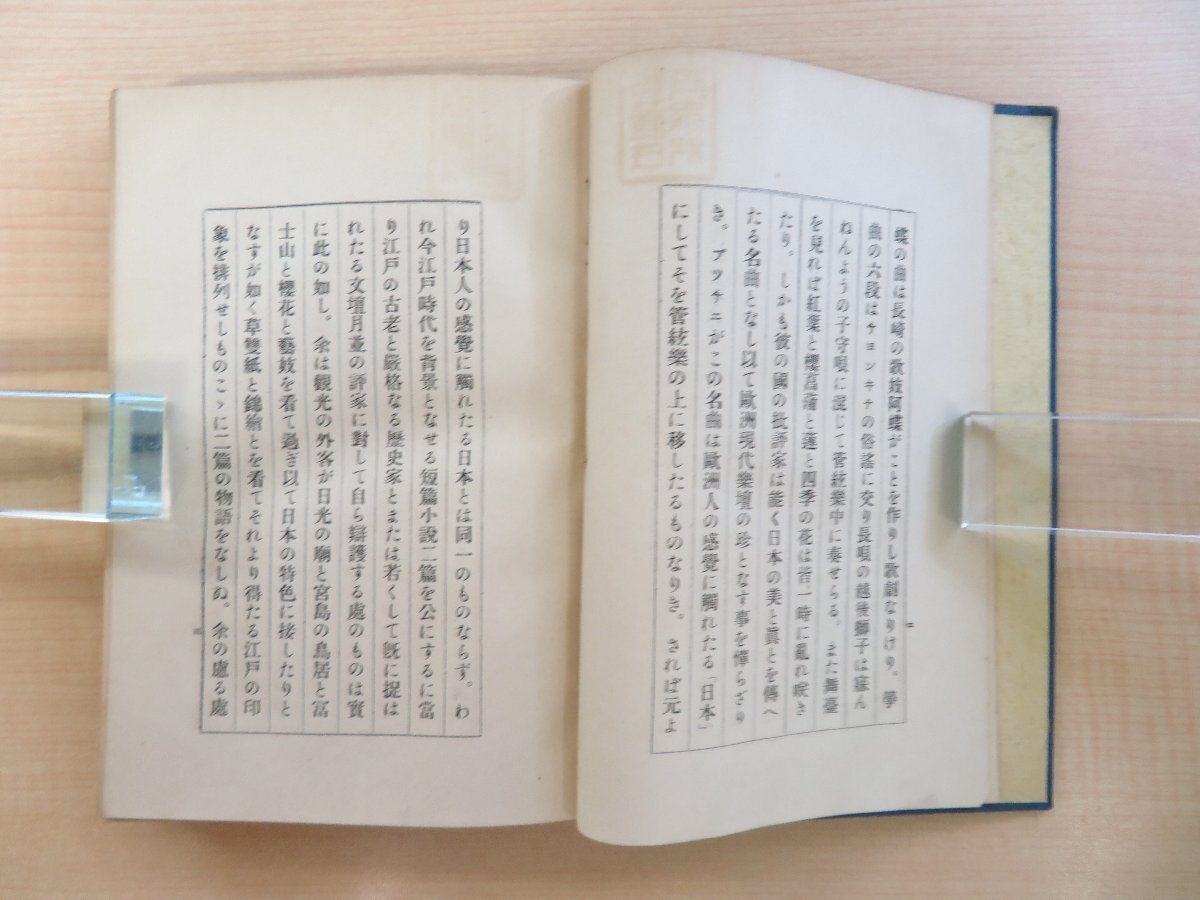 蝶の曲は長崎の歌妓阿蝶がことを作りし歌劇なりけり。箏
曲の六段はチョンキナの俗謠に交り長唄の越後獅子は寐ん
ねんようの子守唄に混じて菅絃樂中に奏せらる。また舞臺
を見れば紅葉と櫻菖蒲と蓮と四季の花は皆一時に亂れ咲き
たり。しかも彼の國の批評家は能く日本の美と眞とを傳へ
たる名曲となし以て歐洲現代樂壇の珍となす事を憚らざり
き。プッチニがこの名曲は歐洲人の感覺に觸れたる「日本」
にしてそを管絃樂の上に移したるものなりき。されば元よ
二
り日本人の感覺に觸れたる日本とは同一のものならず。わ
れ今江戸時代を背景となせる短篇小説二篇を公にするに當
り江戸の古老と嚴格なる歴史家とまたは若くして既に捉は
れたる文壇月並の評家に對して自ら辯護する處のものは實
に此の如し。余は觀光の外客が日光の廟と宮島の鳥居と富
士山と櫻花と藝妓を看て過ぎ以て日本の特色に接したりと
なすが如く草雙紙と錦繪とを看てそれより得たる江戸の印
象を排列せしものこゝに二篇の物語をなしぬ。余の慮る處